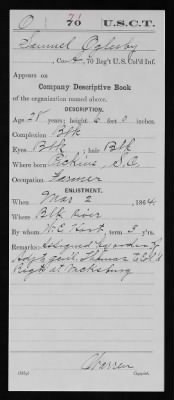 O 70 U.S.C.T.
Samuel Oglesby
, Co. A, 70 Reg't U.S. Col'd Inf.
Appears on
Company Descriptive Book
of the organization named above.
DESCRIPTION.
Age 28 years; height 6 feet 0 inches.
Complexion Blk
Eyes Blk; hair Blk
Where born Pickins, S.C.
Occupation Farmer
ENLISTMENT.
When Mar 2, 1864.
Where Blk River
By whom W.C. , term 3 y'rs.
Remarks: Assigned by order of
Adjt Genl. Thomas to Col'd
Regt at Vicksburg
Copyist.